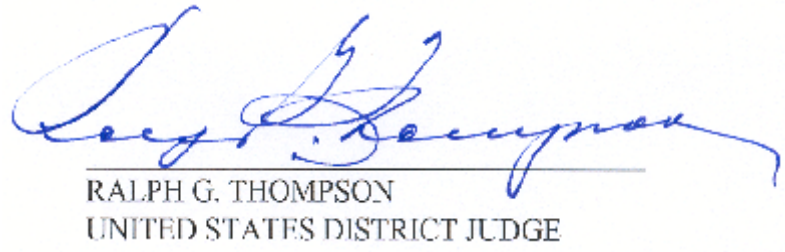 Ralph G. Thompson
RALPH G. THOMPSON
UNITED STATES DISTRICT JUDGE